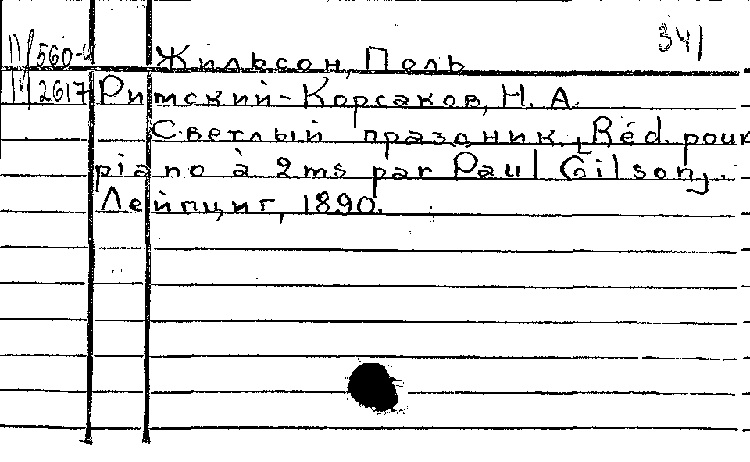 341
560-4 Жильсон, Поль
2617 Римский-Корсаков, Н. А.
Светлый праздник. [Réd. pour
piano à 2 ms par Paul Gilson].
Лейпциг, 1890.